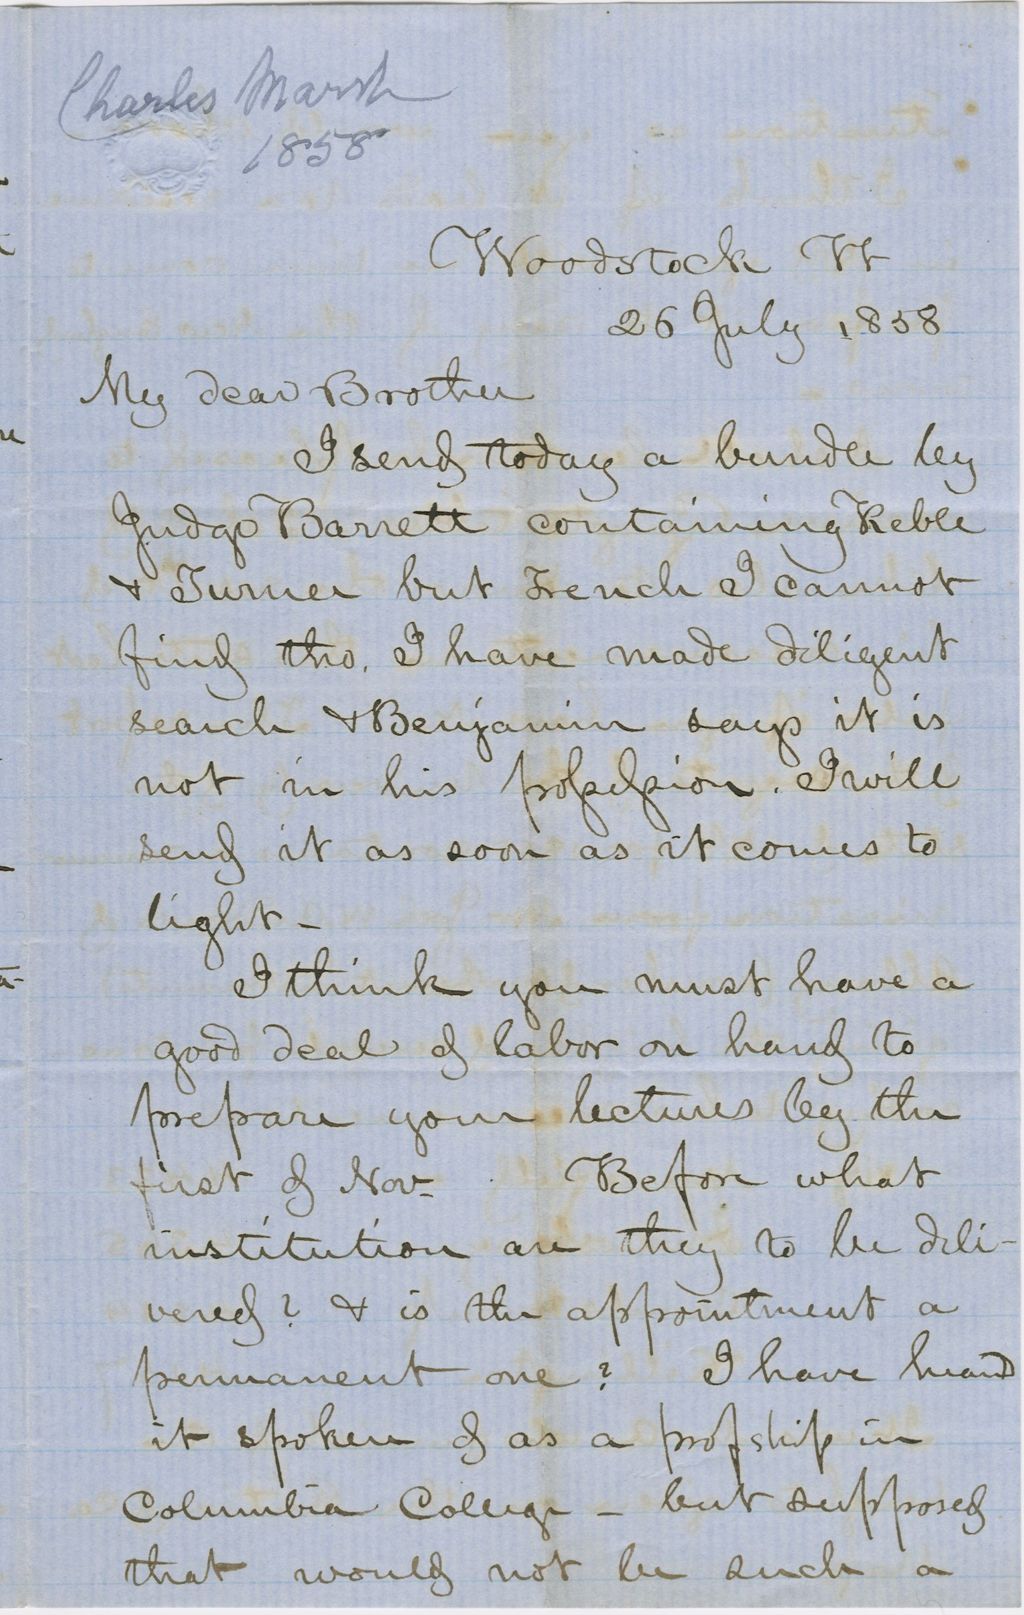 Charles Marsh
1858
Woodstock Vt
26 July 1858
My dear Brother
I send today a bundle by
Judge Barrett containing Keble
& Turner but French I cannot
find tho. I have made diligent
search & Benjamin says it is
not in his possession. I will
send it as soon as it comes to
light –
I think you must have a
good deal of labor on hand to
prepare your lectures by the
first of Nov. Before what
institution are they to be deli-
vered? & is the appointment a
permanent one? I have heard
it spoken of as a profship in
Columbia College – but supposed
that would not be such a